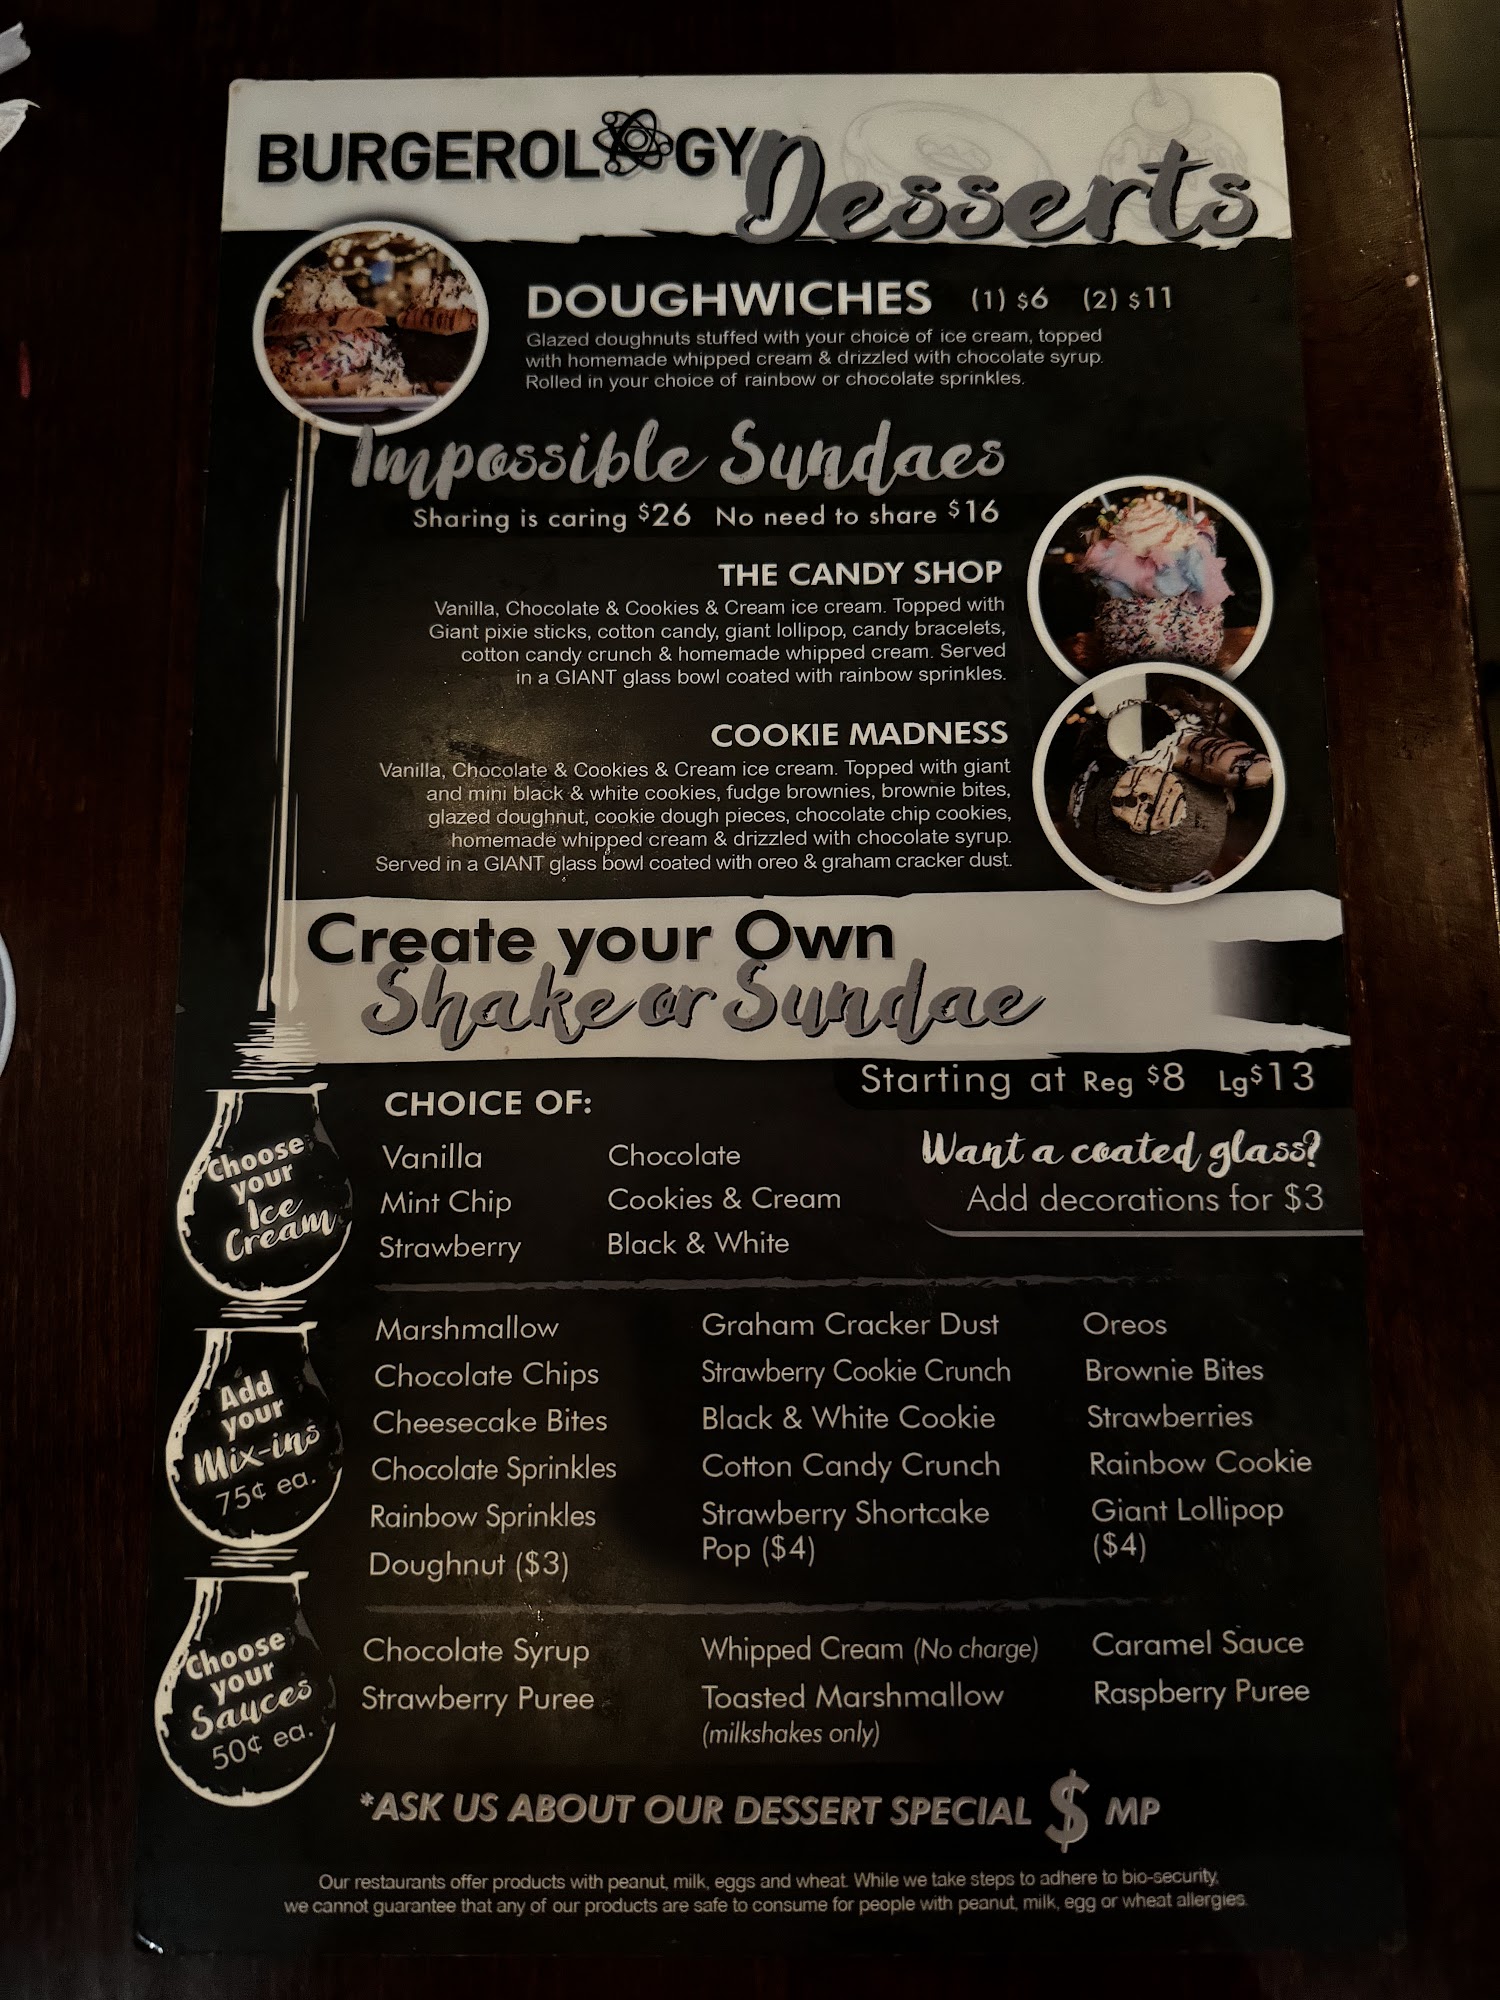 BURGEROLOGY
Desserts
DOUGHWICHES (1) $6 (2) $11
Glazed doughnuts stuffed with your choice of ice cream, topped
with homemade whipped cream & drizzled with chocolate syrup.
Rolled in your choice of rainbow or chocolate sprinkles.
Impossible Sundaes
Sharing is caring $26 No need to share $16
THE CANDY SHOP
Vanilla, Chocolate & Cookies & Cream ice cream. Topped with
Giant pixie sticks, cotton candy, giant lollipop, candy bracelets,
cotton candy crunch & homemade whipped cream. Served
in a GIANT glass bowl coated with rainbow sprinkles.
COOKIE MADNESS
Vanilla, Chocolate & Cookies & Cream ice cream. Topped with giant
and mini black & white cookies, fudge brownies, brownie bites,
glazed doughnut, cookie dough pieces, chocolate chip cookies,
homemade whipped cream & drizzled with chocolate syrup.
Served in a GIANT glass bowl coated with oreo & graham cracker dust.
Create your Own
Shake or Sundae
Starting at Reg $8 Lg $13
Choose
your
Ice
Cream
CHOICE OF:
Vanilla Chocolate
Mint Chip Cookies & Cream
Strawberry Black & White
Want a coated glass?
Add decorations for $3
Add
your
Mix-ins
75¢ ea.
Marshmallow Graham Cracker Dust Oreos
Chocolate Chips Strawberry Cookie Crunch Brownie Bites
Cheesecake Bites Black & White Cookie Strawberries
Chocolate Sprinkles Cotton Candy Crunch Rainbow Cookie
Rainbow Sprinkles Strawberry Shortcake Giant Lollipop
Doughnut ($3) Pop ($4) ($4)
Choose
your
Sauces
50¢ ea.
Chocolate Syrup Whipped Cream (No charge) Caramel Sauce
Strawberry Puree Toasted Marshmallow Raspberry Puree
(milkshakes only)
*ASK US ABOUT OUR DESSERT SPECIAL $ MP
Our restaurants offer products with peanut, milk, eggs and wheat. While we take steps to adhere to bio-security,
we cannot guarantee that any of our products are safe to consume for people with peanut, milk, egg or wheat allergies.